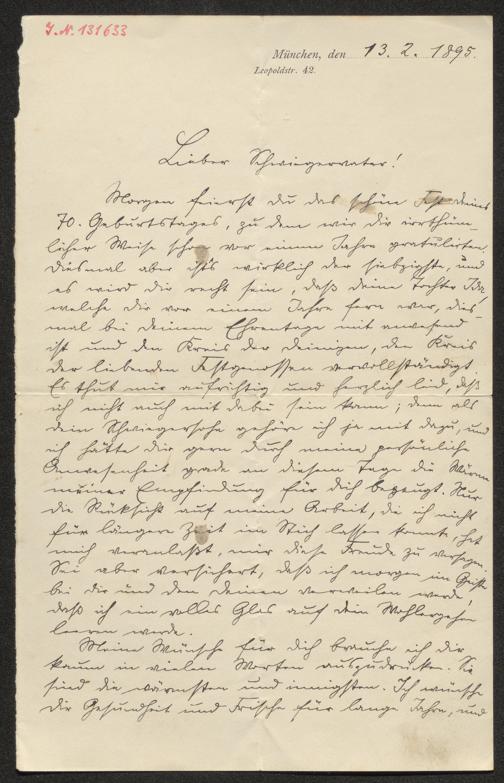 J.N. 131633
München, den 13. 2. 1895.
Leopoldstr. 42.
Lieber Schwiegervater!
Morgen feierst du das schöne Fest deines
70. Geburtstages, zu dem wir dir irrthüm-
licher Weise schon vor einem Jahre gratulierten.
Diesmal aber ist's wirklich der siebzigste, und
es wird dir recht sein, daß deine Tochter Ida,
welche dir vor einem Jahre fern war, dies-
mal bei deinem Ehrentage mit anwesend
ist und den Kreis der deinigen, den Kreis
der liebenden Festgenossen vervollständigt.
Es thut mir aufrichtig und herzlich leid, daß
ich nicht auch mit dabei sein kann; denn als
dein Schwiegersohn gehöre ich ja mit dazu, und
ich hätte dir gern durch meine persönliche
Anwesenheit grade an diesem Tage die Wärme
meiner Empfindung für dich bezeugt. Nur
die Rücksicht auf meine Arbeit, die ich nicht
für längere Zeit im Stich lassen konnte, hat
mich veranlaßt, mir diese Freude zu versagen.
Sei aber versichert, daß ich morgen im Geiste
bei dir und den deinen verweilen werde,
daß ich ein volles Glas auf dein Wohlergehen
leeren werde.
Meine Wünsche für dich brauche ich dir
kaum in vielen Worten auszudrücken. Sie
sind die wärmsten und innigsten. Ich wünsche
dir Gesundheit und Frische für lange Jahre, und